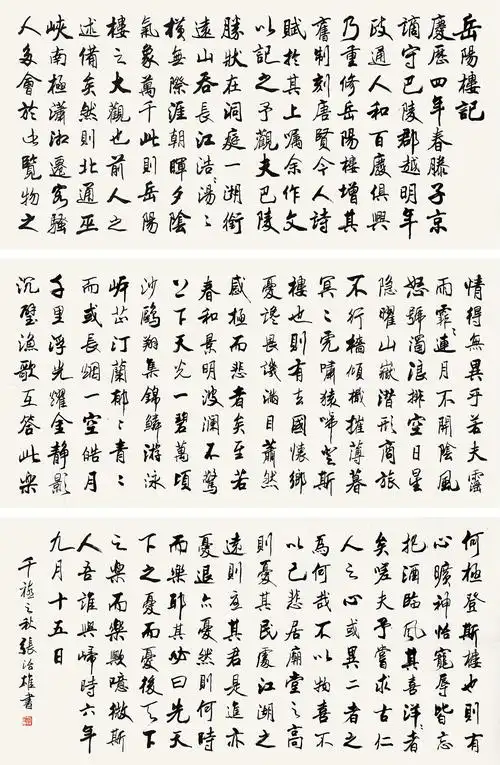 岳陽樓記
慶歷四年春滕子京
謫守巴陵郡越明年
政通人和百廢俱興
乃重修岳陽樓增其
舊制刻唐賢今人詩
賦於其上囑余作文
以記之予觀夫巴陵
勝狀在洞庭一湖銜
遠山吞長江浩浩湯湯
橫無際涯朝暉夕陰
氣象萬千此則岳陽
樓之大觀也前人之
述備矣然則北通巫
峽南極瀟湘遷客騷
人多會於此覽物之
情得無異乎若夫霪
雨霏霏連月不開陰風
怒號濁浪排空日星
隱曜山嶽潛形商旅
不行檣傾楫摧薄暮
冥冥虎嘯猿啼登斯
樓也則有去國懷鄉
憂讒畏譏滿目蕭然
感極而悲者矣至若
春和景明波瀾不驚
上下天光一碧萬頃
沙鷗翔集錦鱗游泳
岸芷汀蘭郁郁青青
而或長烟一空皓月
千里浮光耀金靜影
沉璧漁歌互答此樂
何極登斯樓也則有
心曠神怡寵辱皆忘
把酒臨風其喜洋洋者
矣嗟夫予嘗求古仁
人之心或異二者之
為何哉不以物喜不
以己悲居廟堂之高
則憂其民處江湖之
遠則憂其君是進亦
憂退亦憂然則何時
而樂耶其必曰先天
下之憂而憂後天下
之樂而樂歟噫微斯
人吾誰與歸時六年
九月十五日
千禧之秋張治雄書